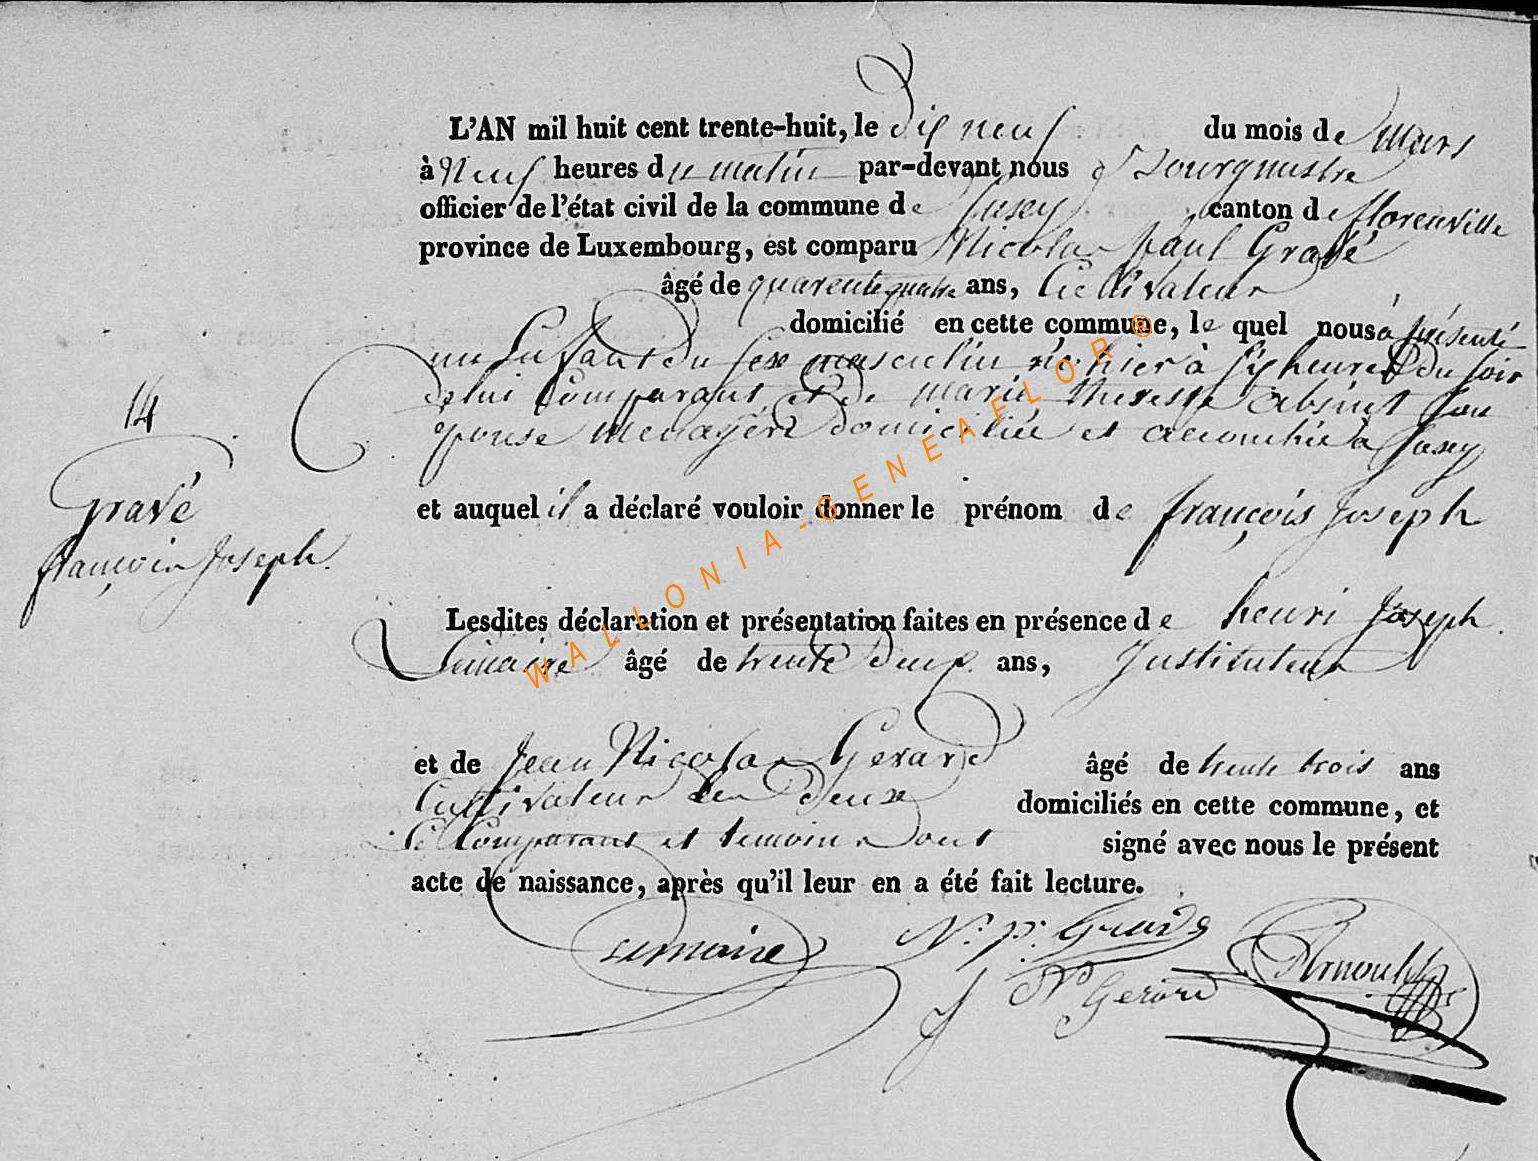 L'AN mil huit cent trente-huit, le dix neuf du mois de mars
à Neuf heures du matin par-devant nous Bourgmestre
officier de l'état civil de la commune de Jusey canton de florenville
province de Luxembourg, est comparu Nicolas Paul Gravé
âgé de quarente quatre ans, Cultivateur
domicilié en cette commune, le quel nous à présenté
un Enfant du sexe masculin né hier à six heures du soir
de lui Comparant et de marie therese son
épouse Menagère domiciliée et accouchée à Jusey
et auquel il a déclaré vouloir donner le prénom de françois Joseph
14
Gravé
françois Joseph.
Lesdites déclaration et présentation faites en présence de henri Joseph
Lemaire âgé de trente deux ans, Instituteur
et de Jean Nicolas Gerard âgé de trente trois ans
Cultivateur les deux domiciliés en cette commune, et
le Comparant et temoins ont signé avec nous le présent
acte de naissance, après qu'il leur en a été fait lecture.
Lemaire N. P. Gravé Arnould
J Ns Gerard
WALLONIA-GENEAFLOR®